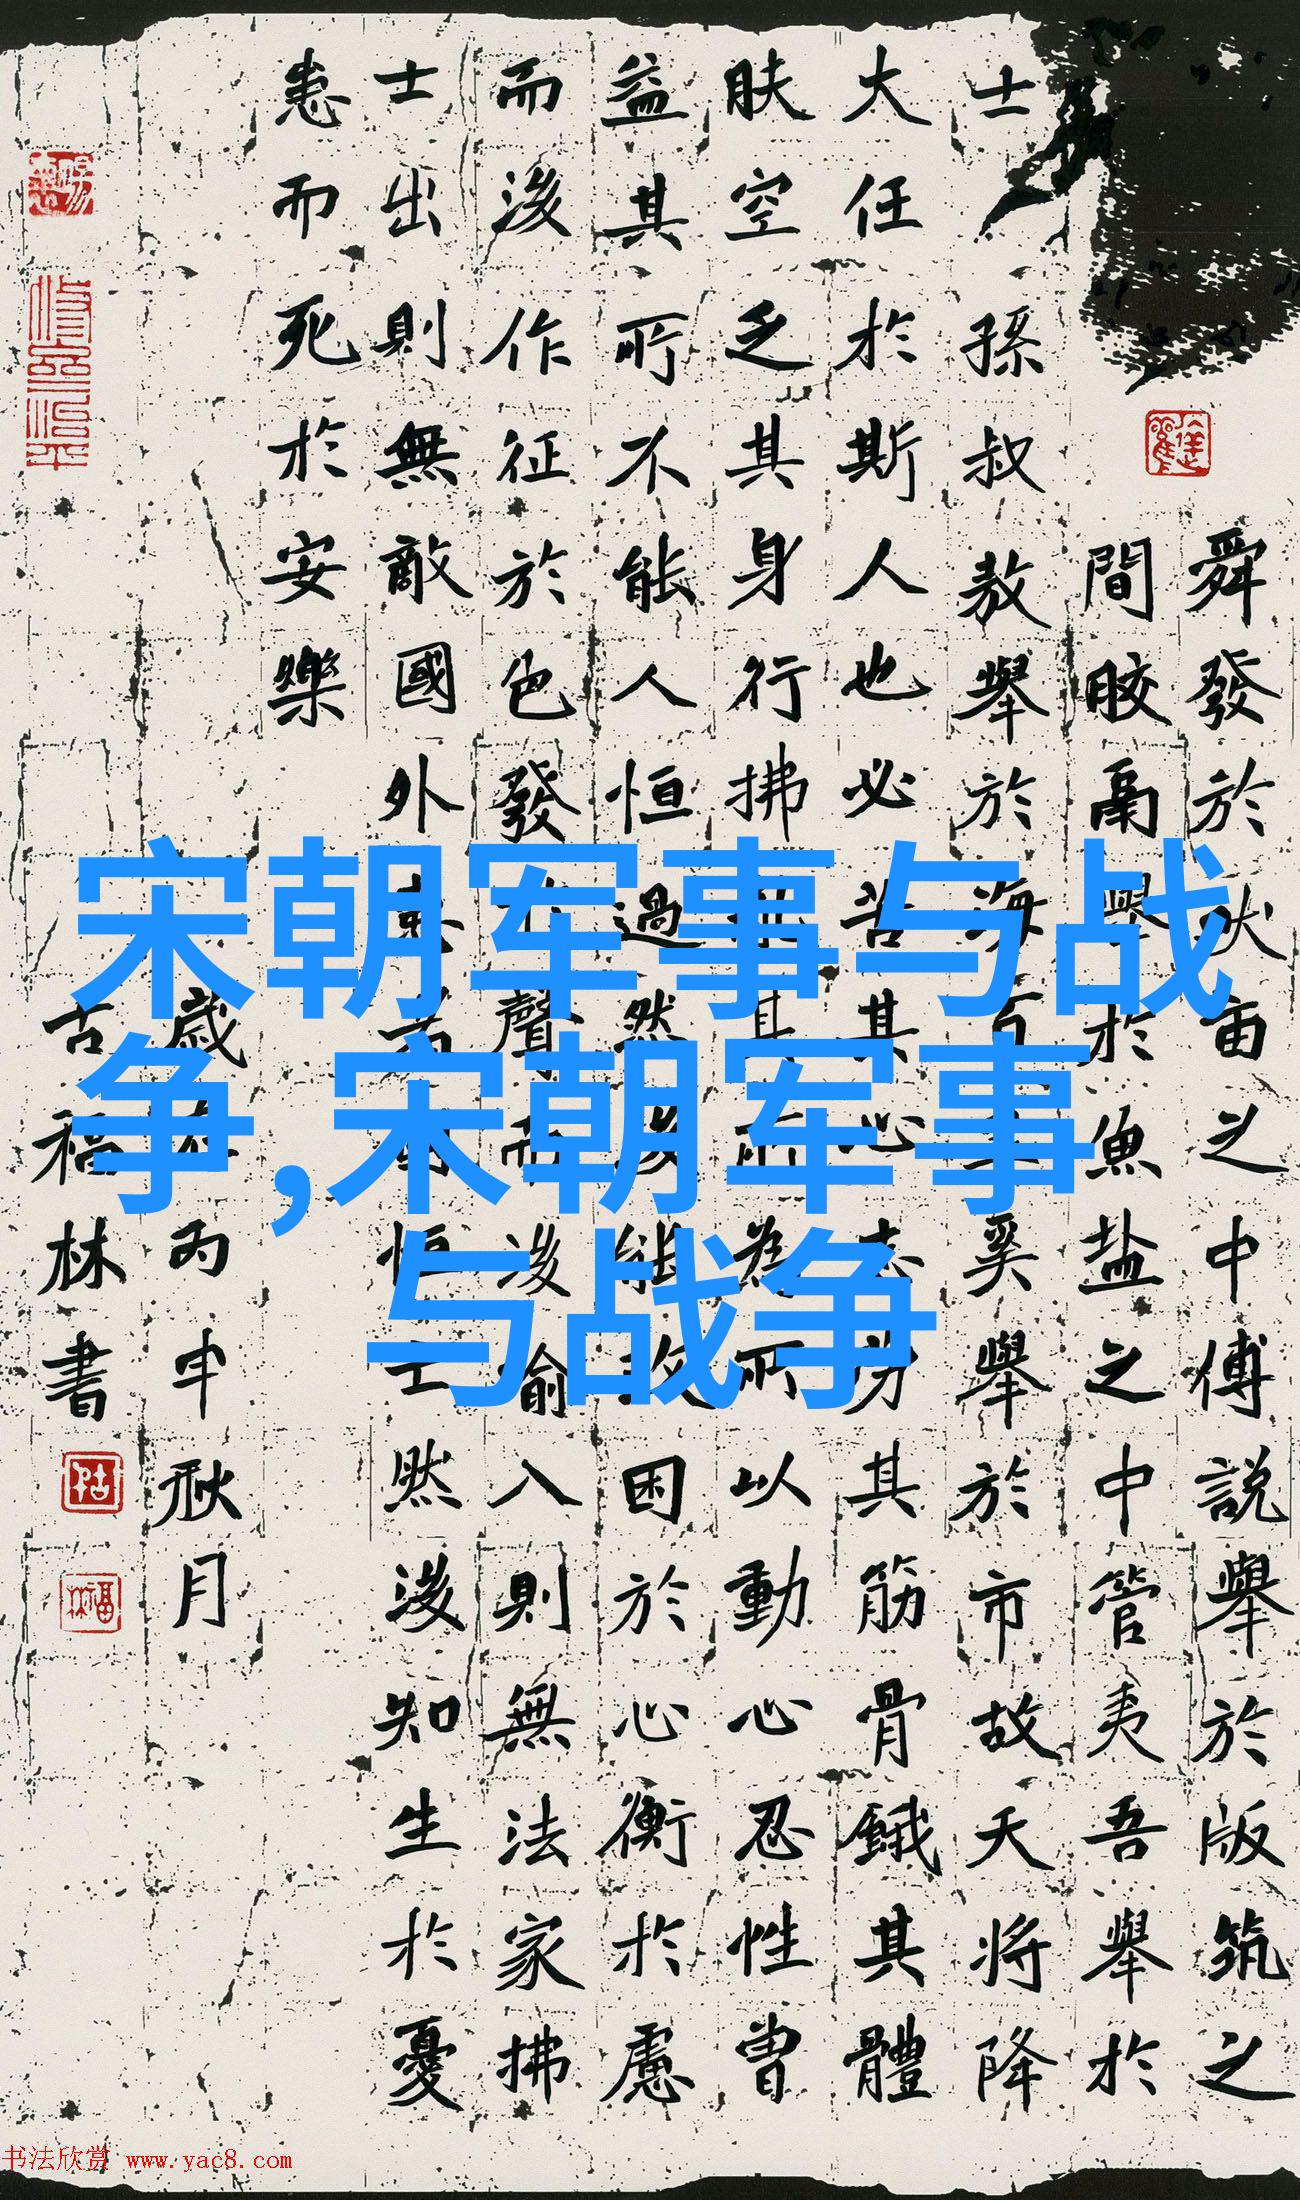 舜發於畎亩之中傅說舉於版筑之
間膠鬲舉於魚盐之中管夷吾舉於
士孫叔敖舉於海百里奚舉於市故天將降
大任於斯人也必苦其心志勞其筋骨餓其體
肤空乏其身行拂亂其所為所以動心忍性曾
益其所不能人恒過然後能改困於心衡於慮
而後作征於色發於聲而後喻入則無法家拂
士出則無敵國外患者國恒亡然後知生於憂
患而死於安樂
歲在丙申秋月
古福林書
宋朝军事与战
争,宋朝军事
与战争
书法欣赏 www.yac8.com